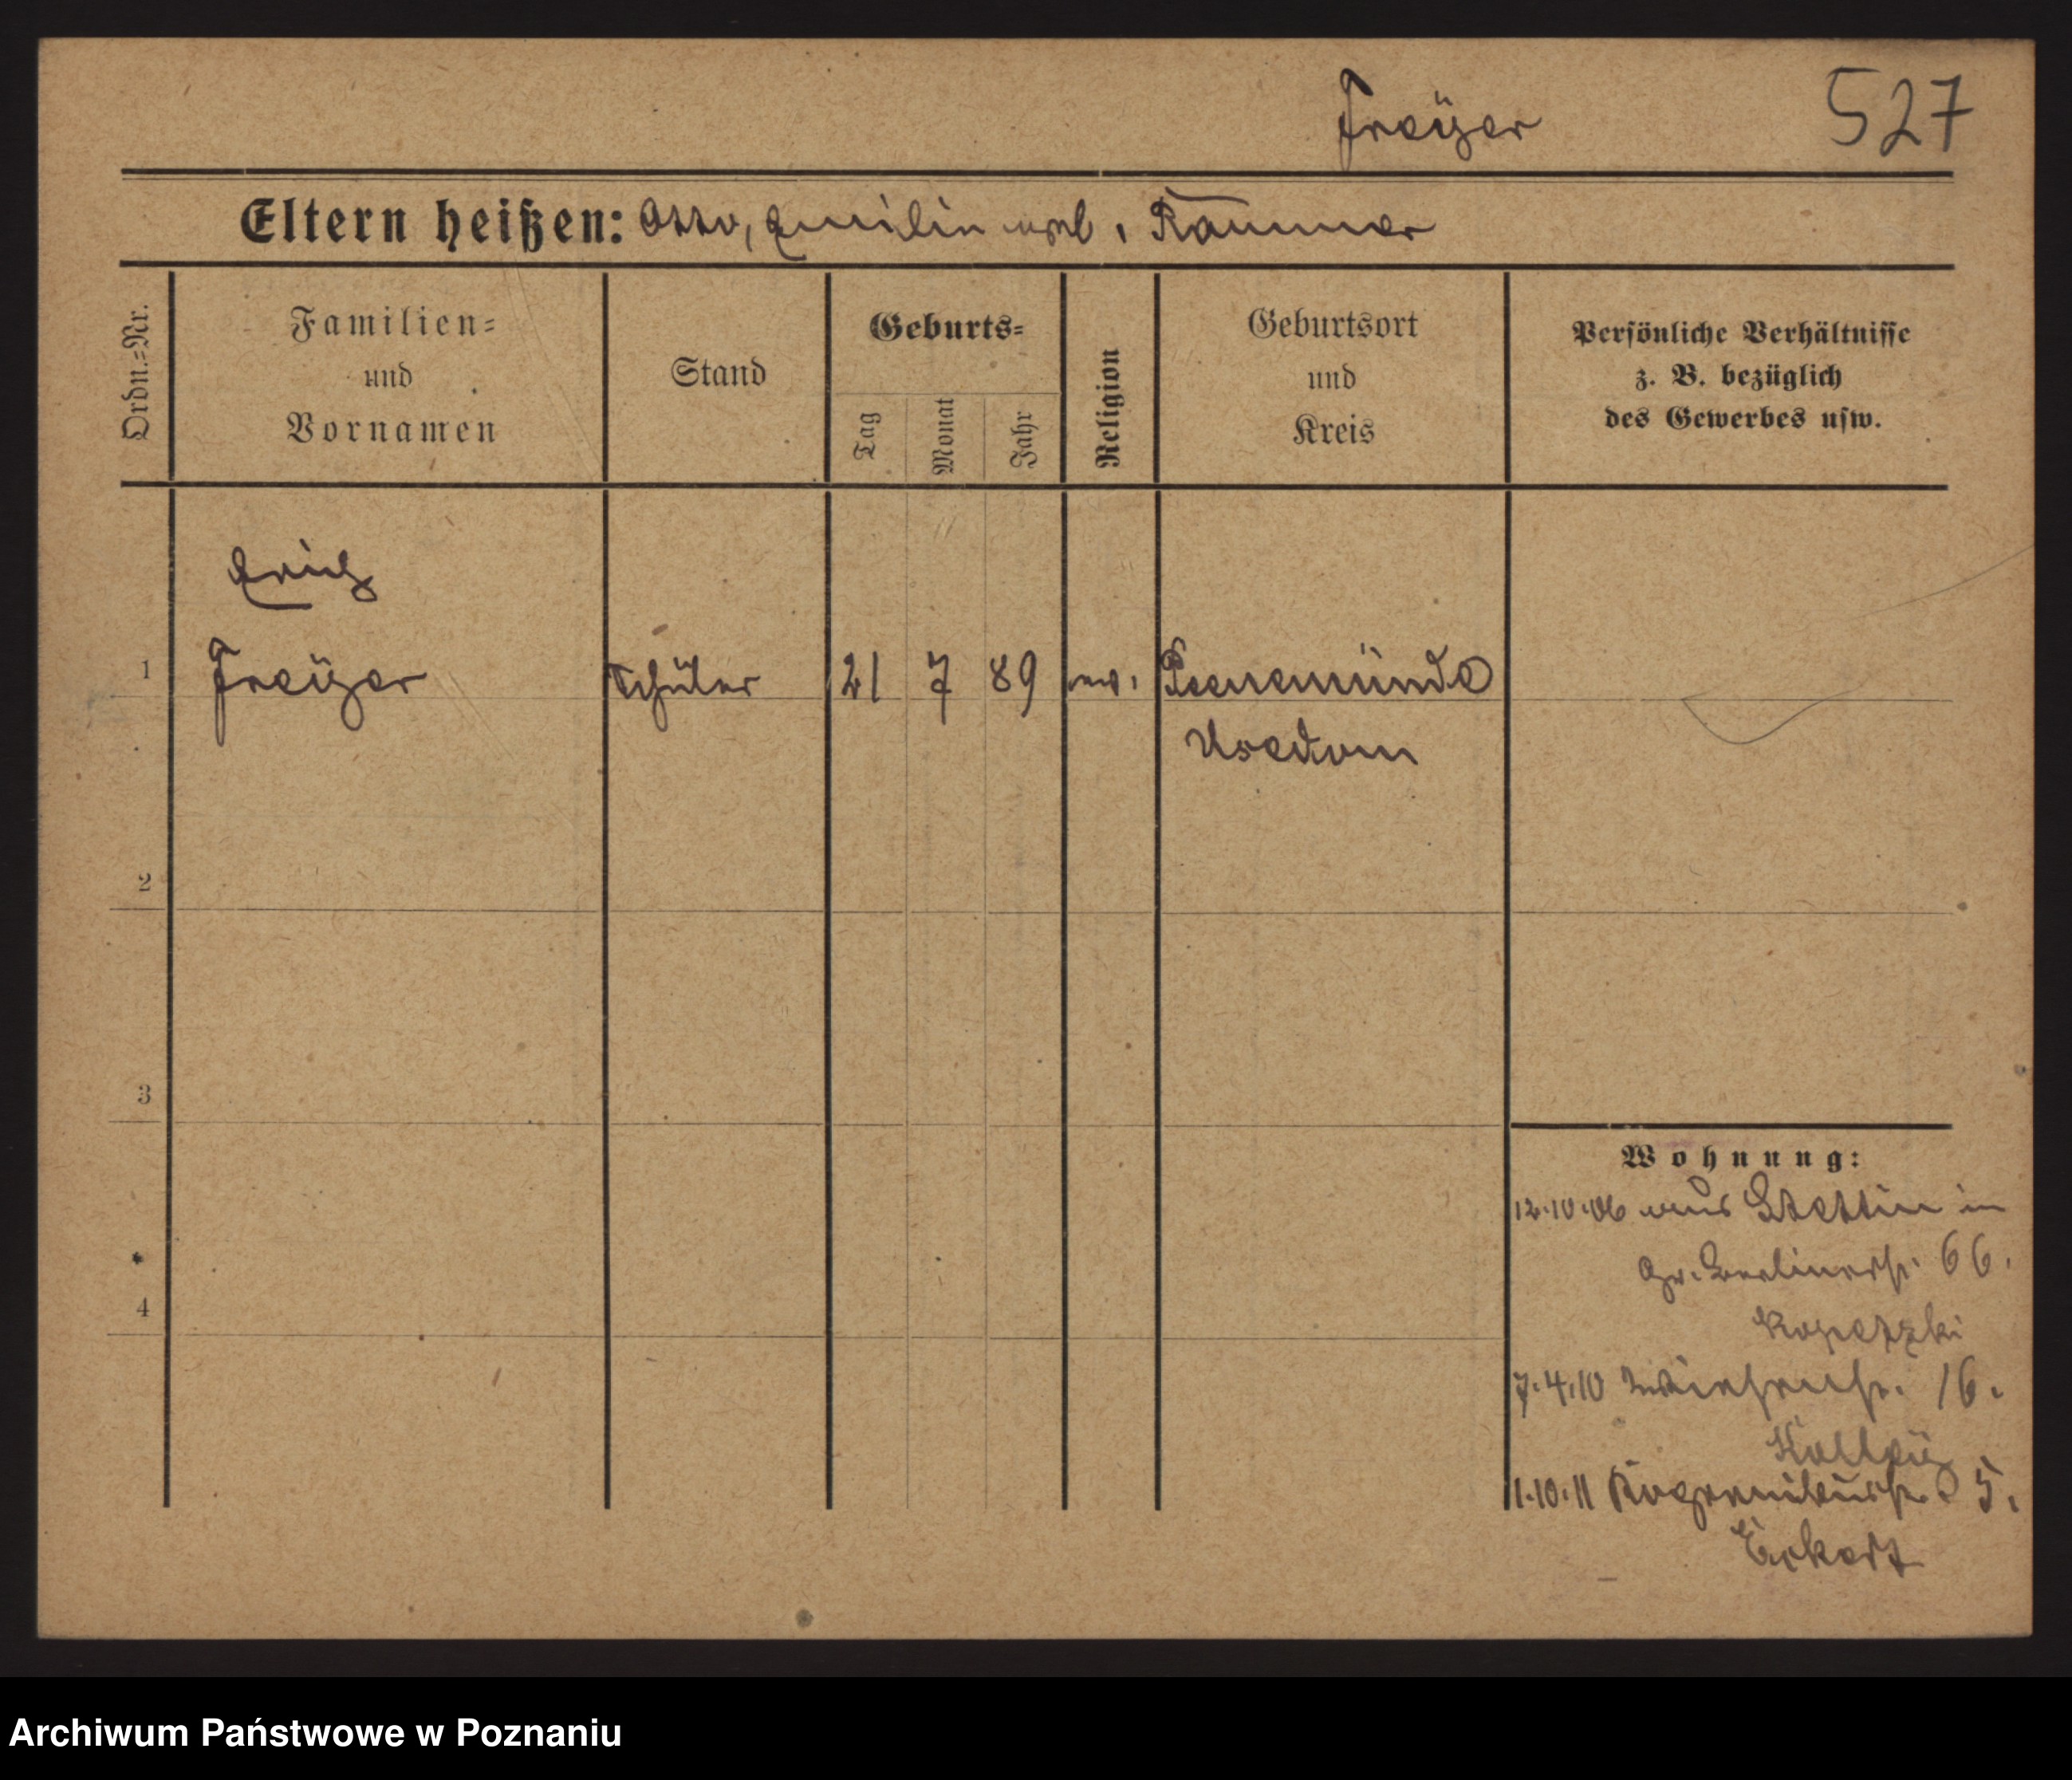 Freÿer 527
Eltern heißen: Otto, Emilie geb. Kammer
Ordn.=Nr.
Familien=
und
Vornamen
Stand
Geburts=
Tag Monat Jahr
Religion
Geburtsort
und
Kreis
Persönliche Verhältnisse
z. B. bezüglich
des Gewerbes usw.
Erich
1 Freÿer Schüler 21 7 89 ev. Peenemünde
Usedom
2
3
4
Wohnung:
12.10.06 aus Stettin in
Gr. Berlinerstr. 66.
Kopetzki
7.4.10 16.
1.10.11 5.
Eckert
Archiwum Państwowe w Poznaniu